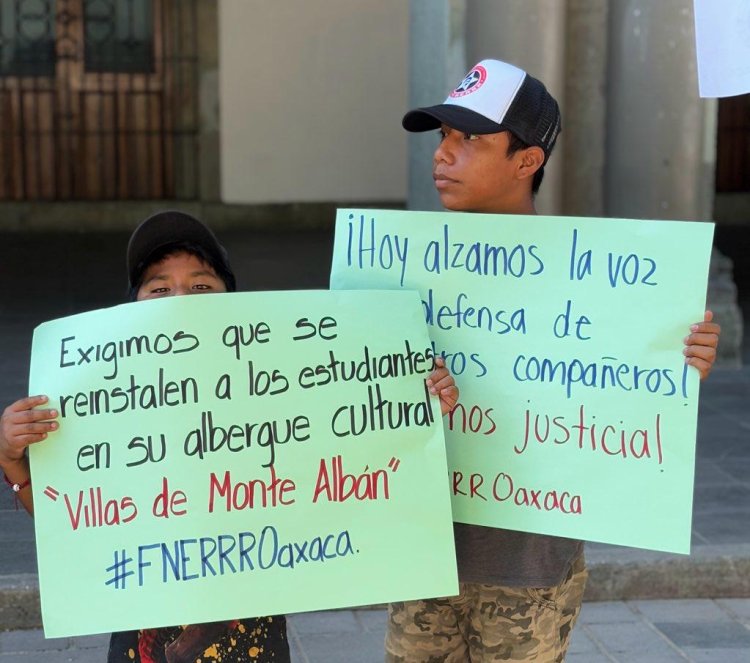 Exigimos que se
reinstalen a los estudiantes
en su albergue cultural
"Villas de Monte Albán"
#FNERRROaxaca.
¡Hoy alzamos la voz
defensa de
compañeros!
justicia!
RROaxaca